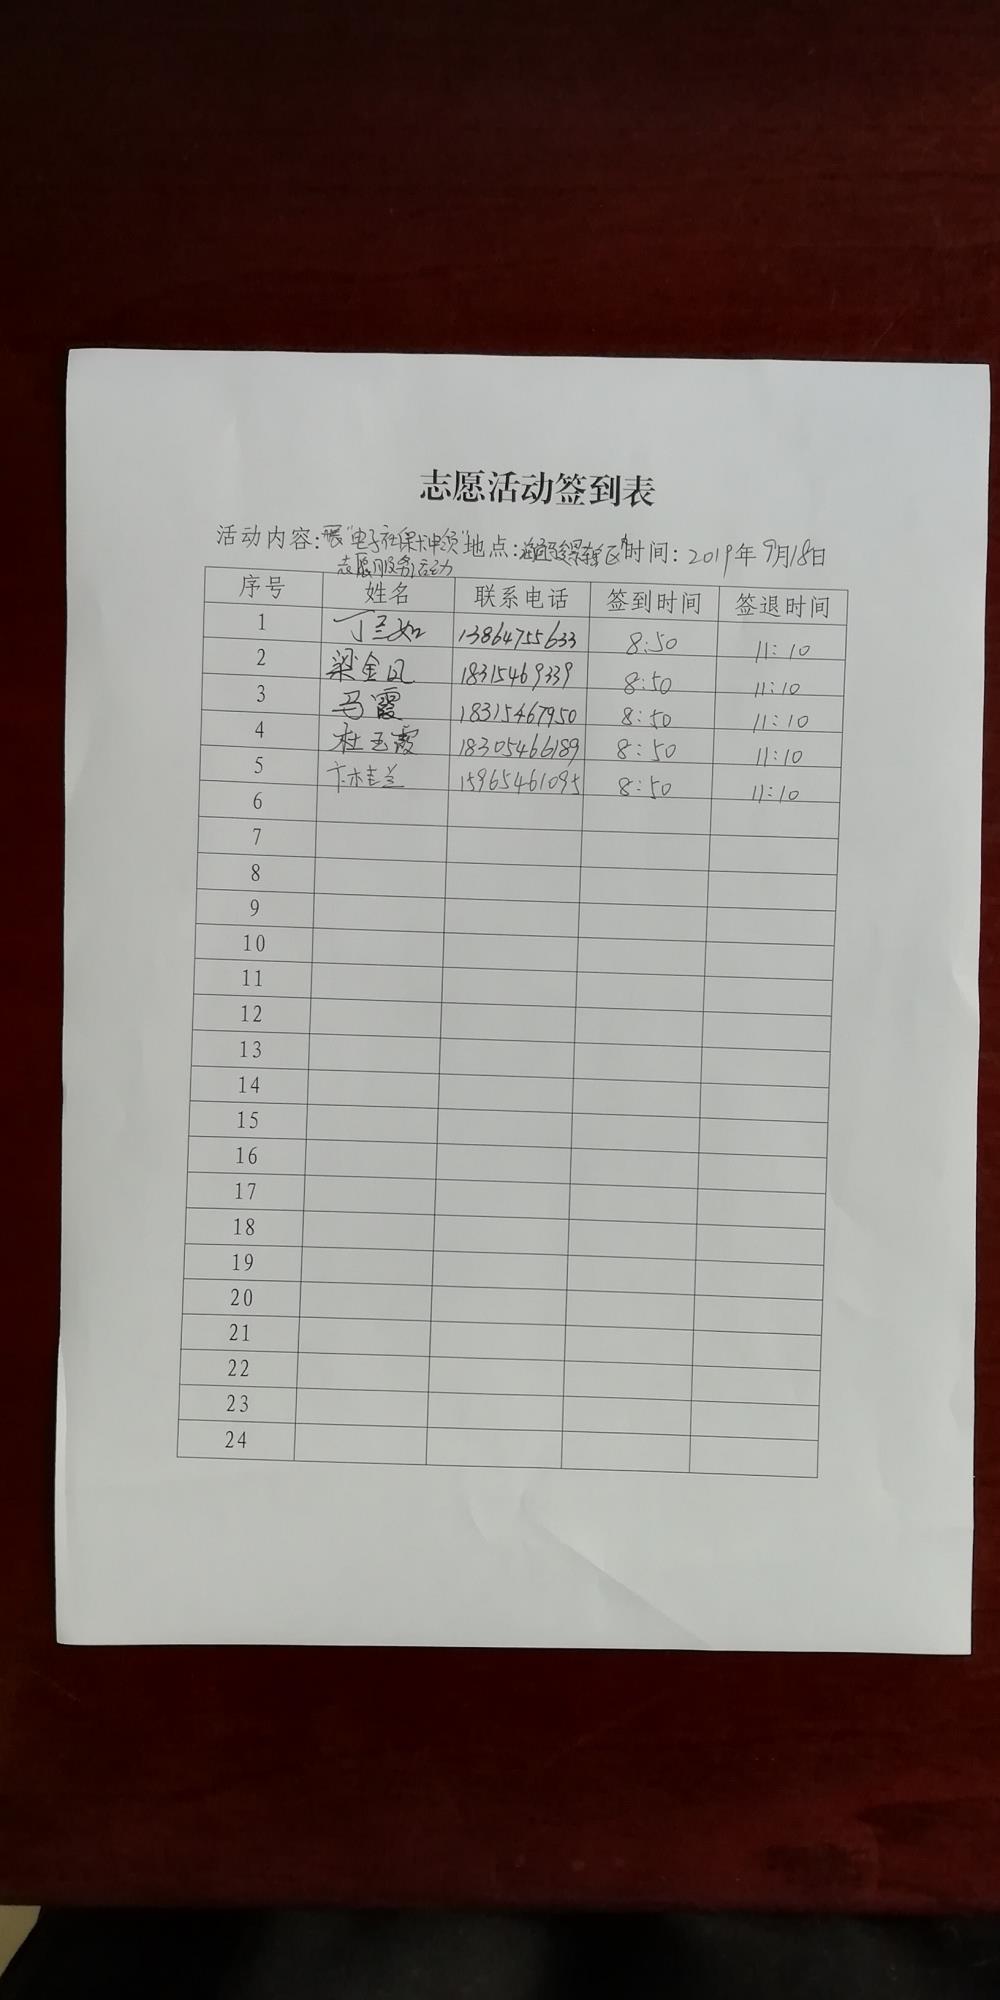 志愿活动签到表
活动内容：开展"电子社保卡申领"地点： 时间：2019年9月18日
志愿服务活动
序号 姓名 联系电话 签到时间 签退时间
1 丁兰如 13864755633 8:50 11:10
2 梁金凤 18315469339 8:50 11:10
3 马霞 18315467950 8:50 11:10
4 杜玉霞 18305466189 8:50 11:10
5 卞桂兰 15965461095 8:50 11:10
6
7
8
9
10
11
12
13
14
15
16
17
18
19
20
21
22
23
24